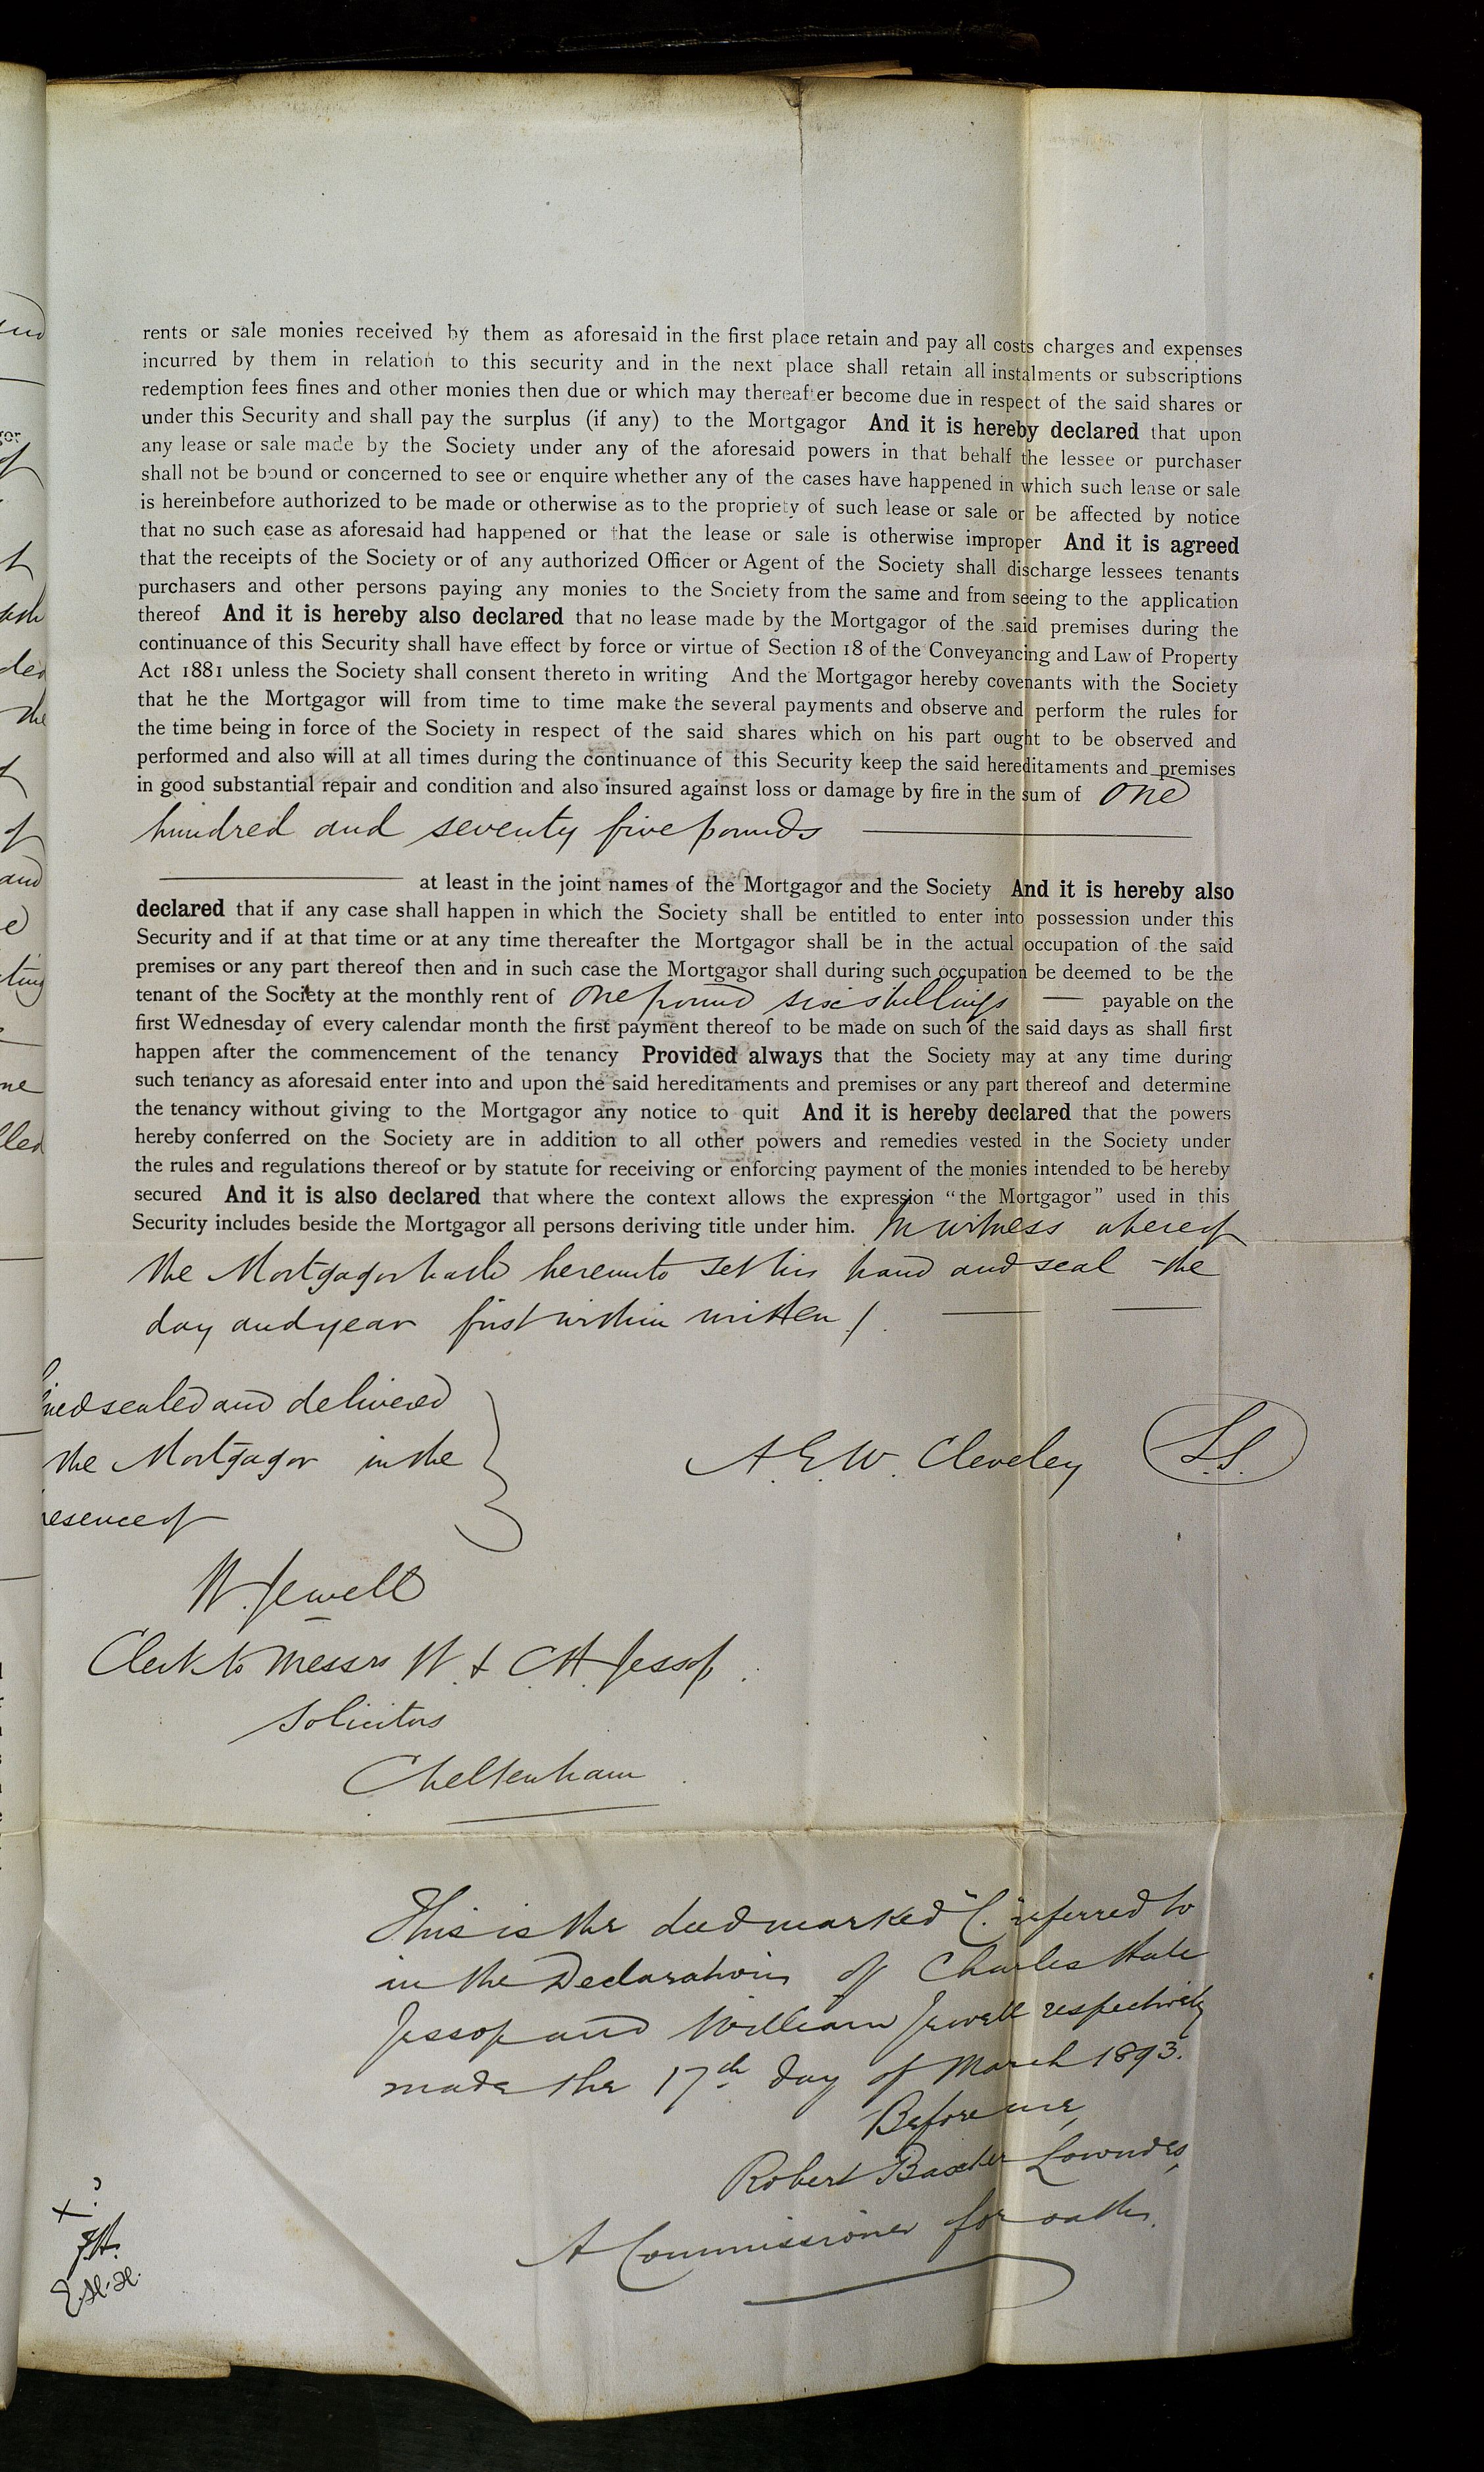 rents or sale monies received by them as aforesaid in the first place retain and pay all costs charges and expenses
incurred by them in relation to this security and in the next place shall retain all instalments or subscriptions
redemption fees fines and other monies then due or which may thereafter become due in respect of the said shares or
under this Security and shall pay the surplus (if any) to the Mortgagor And it is hereby declared that upon
any lease or sale made by the Society under any of the aforesaid powers in that behalf the lessee or purchaser
shall not be bound or concerned to see or enquire whether any of the cases have happened in which such lease or sale
is hereinbefore authorized to be made or otherwise as to the propriety of such lease or sale or be affected by notice
that no such case as aforesaid had happened or that the lease or sale is otherwise improper And it is agreed
that the receipts of the Society or of any authorized Officer or Agent of the Society shall discharge lessees tenants
purchasers and other persons paying any monies to the Society from the same and from seeing to the application
thereof And it is hereby also declared that no lease made by the Mortgagor of the said premises during the
continuance of this Security shall have effect by force or virtue of Section 18 of the Conveyancing and Law of Property
Act 1881 unless the Society shall consent thereto in writing And the Mortgagor hereby covenants with the Society
that he the Mortgagor will from time to time make the several payments and observe and perform the rules for
the time being in force of the Society in respect of the said shares which on his part ought to be observed and
performed and also will at all times during the continuance of this Security keep the said hereditaments and premises
in good substantial repair and condition and also insured against loss or damage by fire in the sum of One
hundred and seventy five pounds
at least in the joint names of the Mortgagor and the Society And it is hereby also
declared that if any case shall happen in which the Society shall be entitled to enter into possession under this
Security and if at that time or at any time thereafter the Mortgagor shall be in the actual occupation of the said
premises or any part thereof then and in such case the Mortgagor shall during such occupation be deemed to be the
tenant of the Society at the monthly rent of One pound six shillings — payable on the
first Wednesday of every calendar month the first payment thereof to be made on such of the said days as shall first
happen after the commencement of the tenancy Provided always that the Society may at any time during
such tenancy as aforesaid enter into and upon the said hereditaments and premises or any part thereof and determine
the tenancy without giving to the Mortgagor any notice to quit And it is hereby declared that the powers
hereby conferred on the Society are in addition to all other powers and remedies vested in the Society under
the rules and regulations thereof or by statute for receiving or enforcing payment of the monies intended to be hereby
secured And it is also declared that where the context allows the expression "the Mortgagor" used in this
Security includes beside the Mortgagor all persons deriving title under him. In witness whereof
the Mortgagor hath hereunto set his hand and seal the
day and year first within written /.
ned sealed and delivered
the Mortgagor in the
esence of
A. E. W. Cleveley L.S.
W. Jewell
Clerk to Messrs W. & C. H. Jessop.
Solicitors
Cheltenham
This is the deed marked "C." referred to
in the Declarations of Charles Hale
Jessop and William Jewell respectively
made the 17th day of March 1893.
Before me,
Robert Baxter Lowndes,
A Commissioner for oaths.